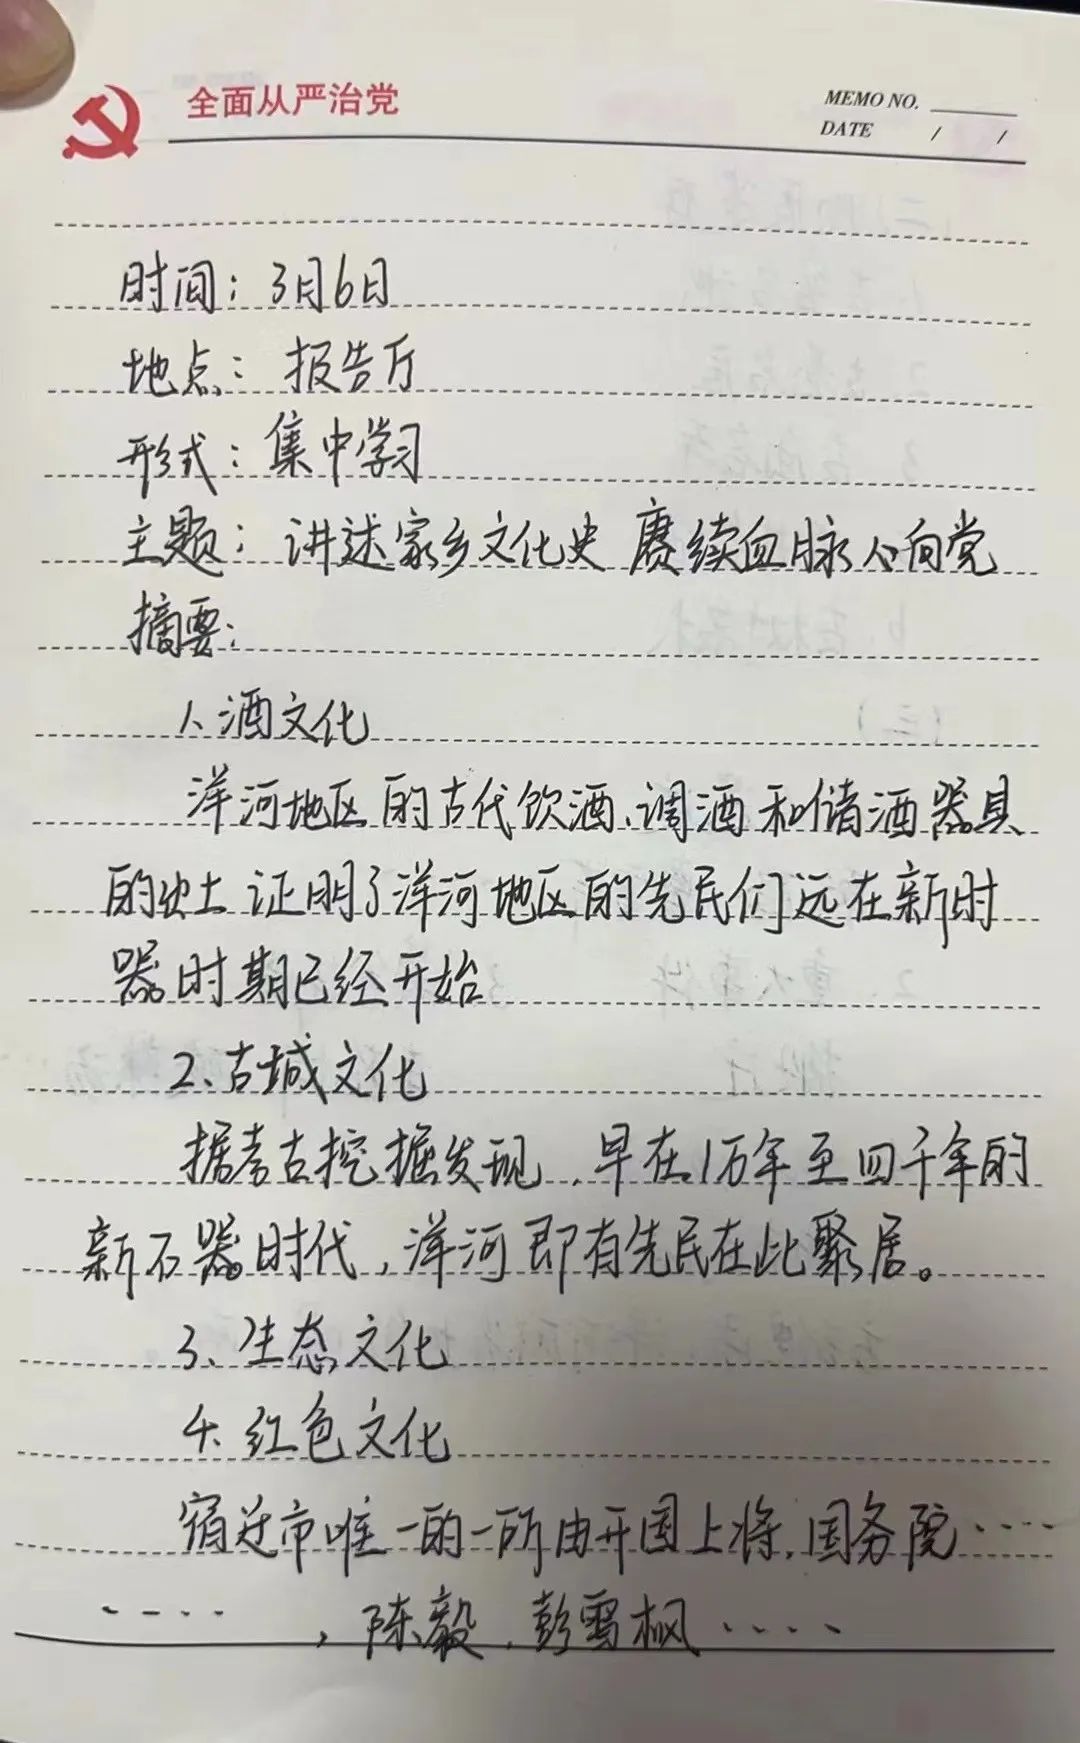 全面从严治党
MEMO NO.
DATE / /
时间：3月6日
地点：报告厅
形式：集中学习
主题：讲述家乡文化史 赓续血脉心向党
摘要：
1、酒文化
洋河地区的古代饮酒、调酒和储酒器具
的出土 证明了洋河地区的先民们远在新时
器时期已经开始
2、古城文化
据考古挖掘发现，早在1万年至四千年的
新石器时代，洋河即有先民在此聚居。
3、生态文化
4、红色文化
宿迁市唯一的一所由开国上将、国务院····
····，陈毅、彭雪枫····